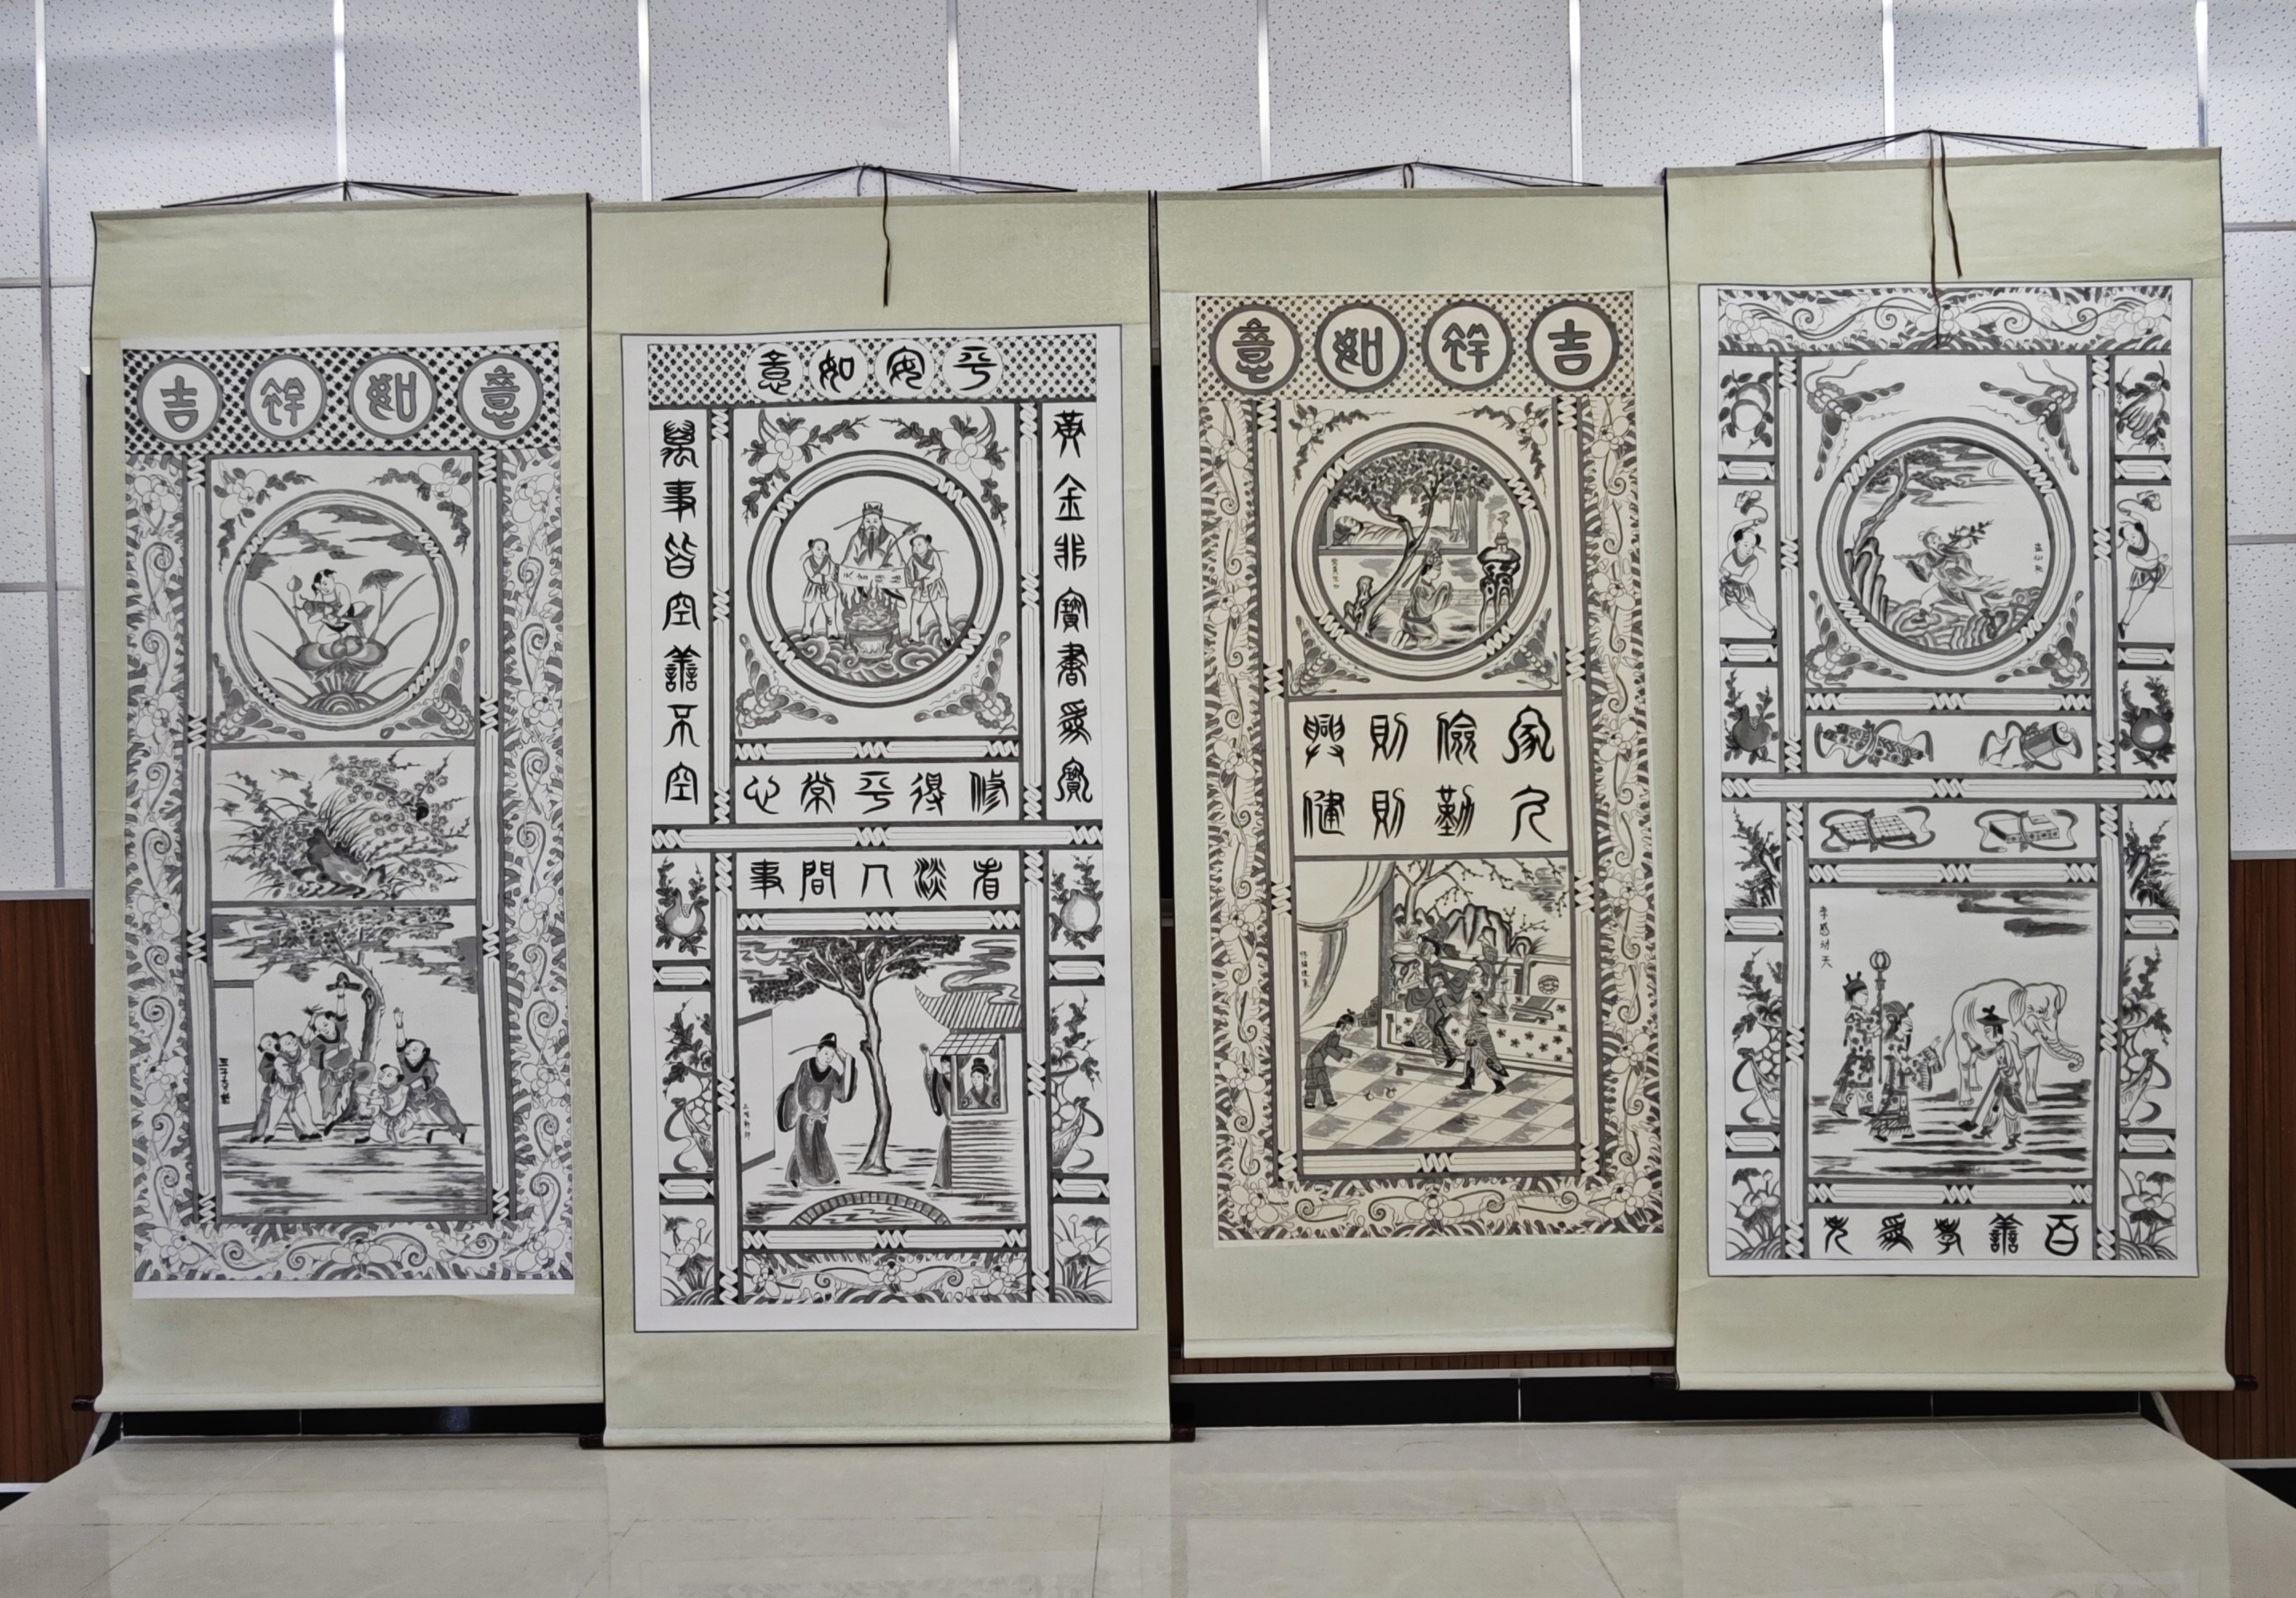 吉祥如意
平安如意
黄金非寶書爲寶
萬事皆空善不空
修得平常心
看淡人間事
吉祥如意
家儉則興
人勤則健
孝感动天
百善孝爲先